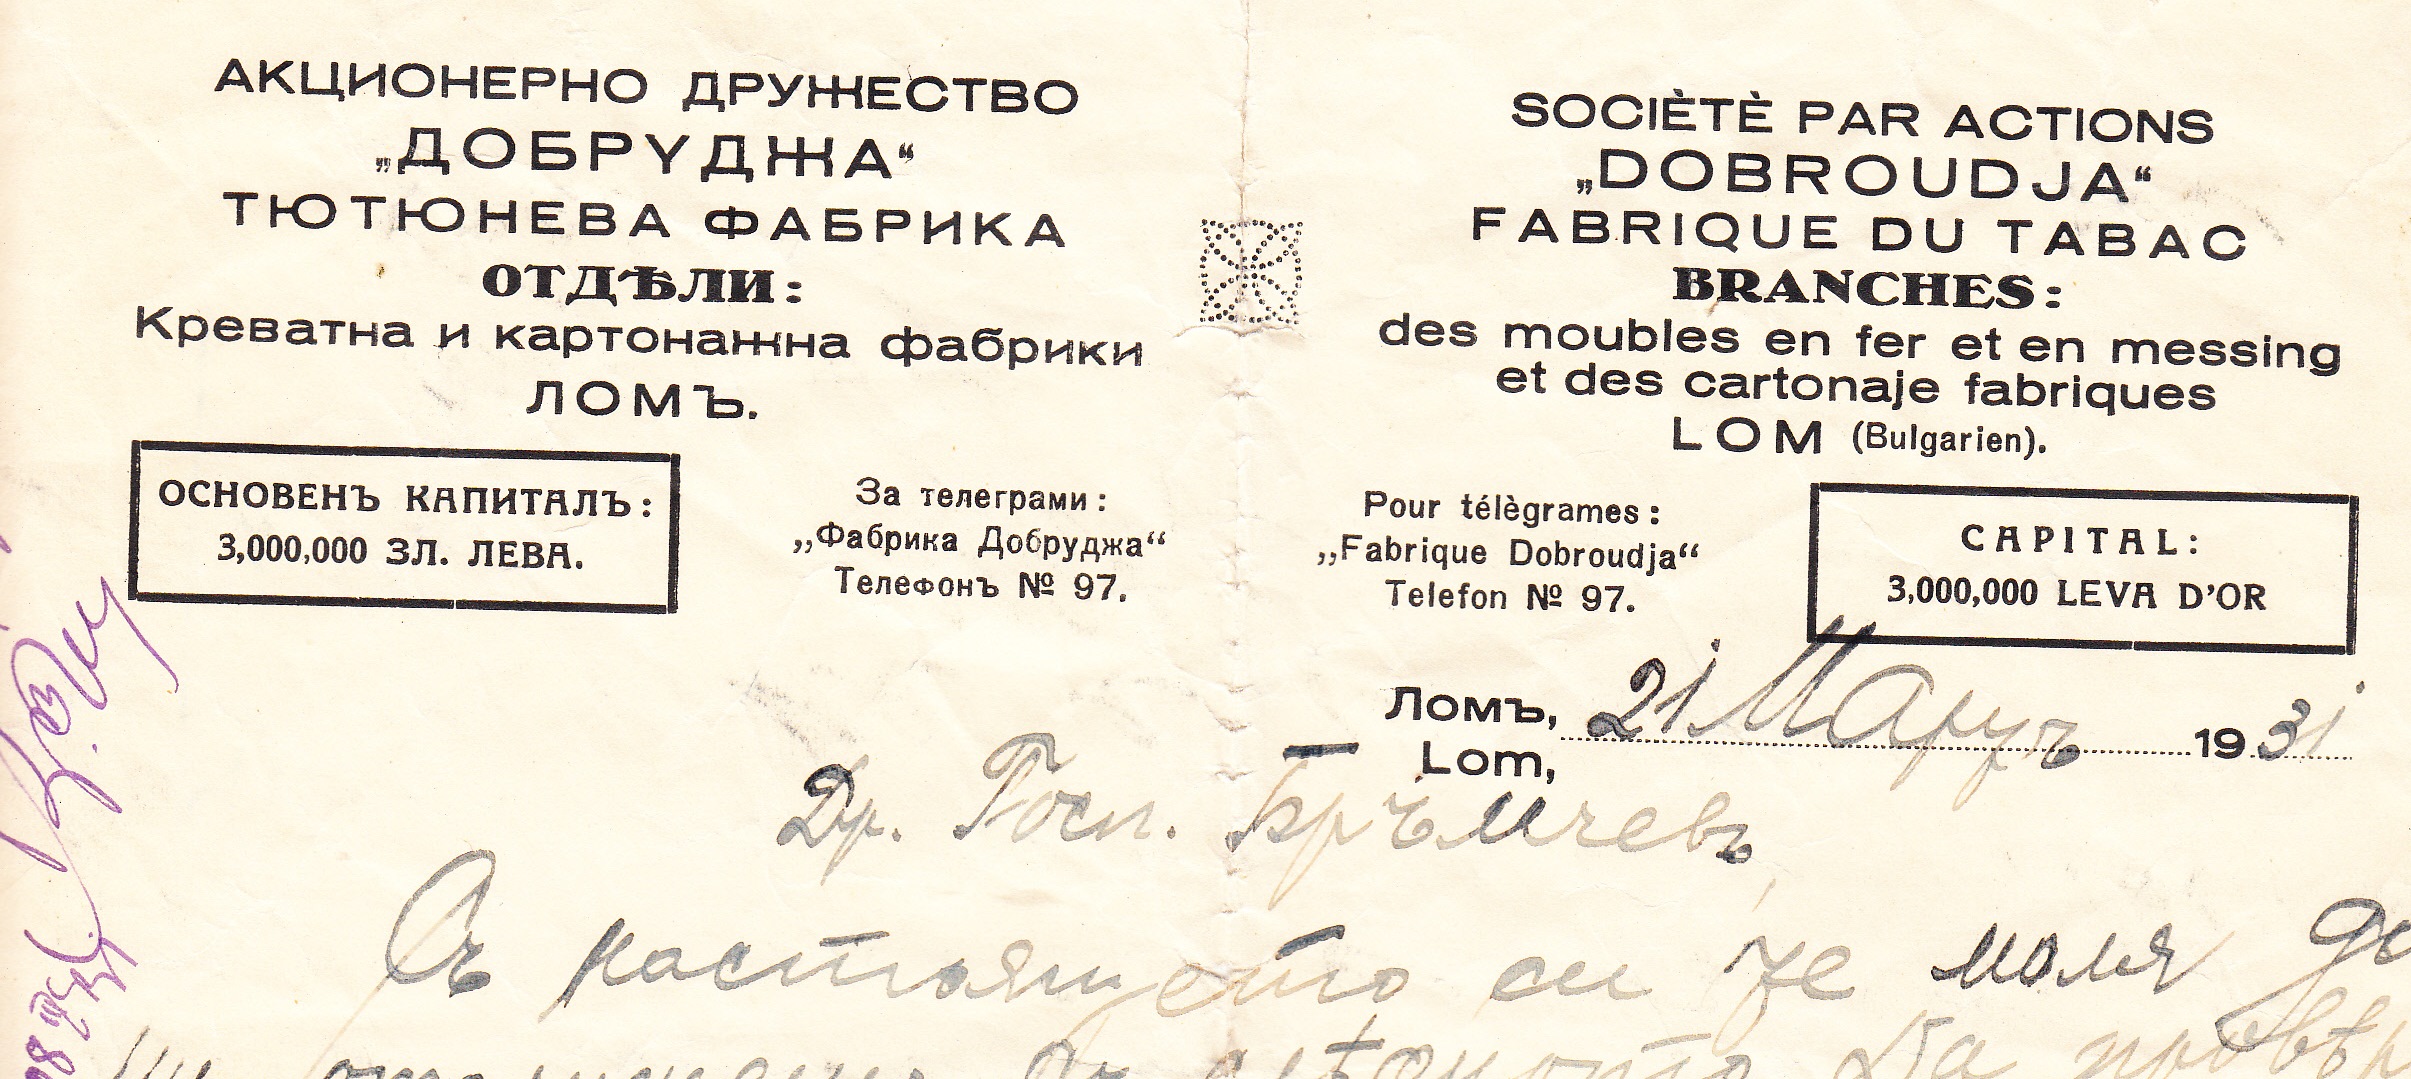 АКЦИОНЕРНО ДРУЖЕСТВО
„ДОБРУДЖА“
ТЮТЮНЕВА ФАБРИКА
ОТДѢЛИ:
Креватна и картонажна фабрики
ЛОМЪ.
ОСНОВЕНЪ КАПИТАЛЪ:
3,000,000 ЗЛ. ЛЕВА.
За телеграми:
„Фабрика Добруджа“
Телефонъ № 97.
SOCIÈTÈ PAR ACTIONS
„DOBROUDJA“
FABRIQUE DU TABAC
BRANCHES:
des moubles en fer et en messing
et des cartonaje fabriques
LOM (Bulgarien).
Pour télègrames:
„Fabrique Dobroudja“
Telefon № 97.
CAPITAL:
3,000,000 LEVA D'OR
Ломъ, 21 Мартъ 1931
Lom,
Др. Госп. Бръмчевъ,
Съ настоящето си Же моля